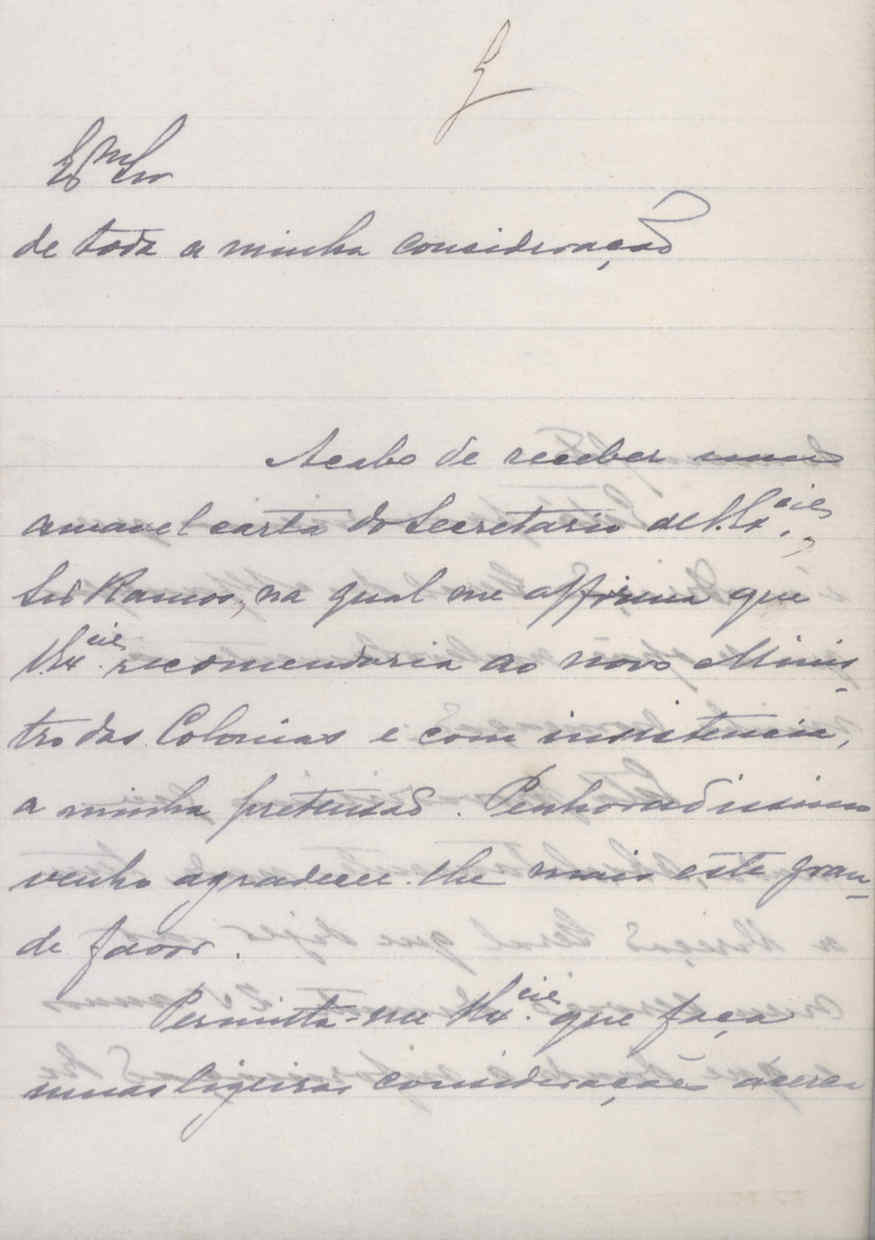 Exmo Snr
de toda a minha consideração
Acabo de receber uma
amavel carta do Secretario de V. Excia,
Snr Ramos, na qual me affirma que
V. Excia recomendaria ao novo Minis-
tro das Colonias e com insistencia,
a minha pretensão. Penhoradissimo
venho agradecer-lhe mais este gran-
de favor.
Permita-me V. Excia que faça
umas ligeiras considerações acerca